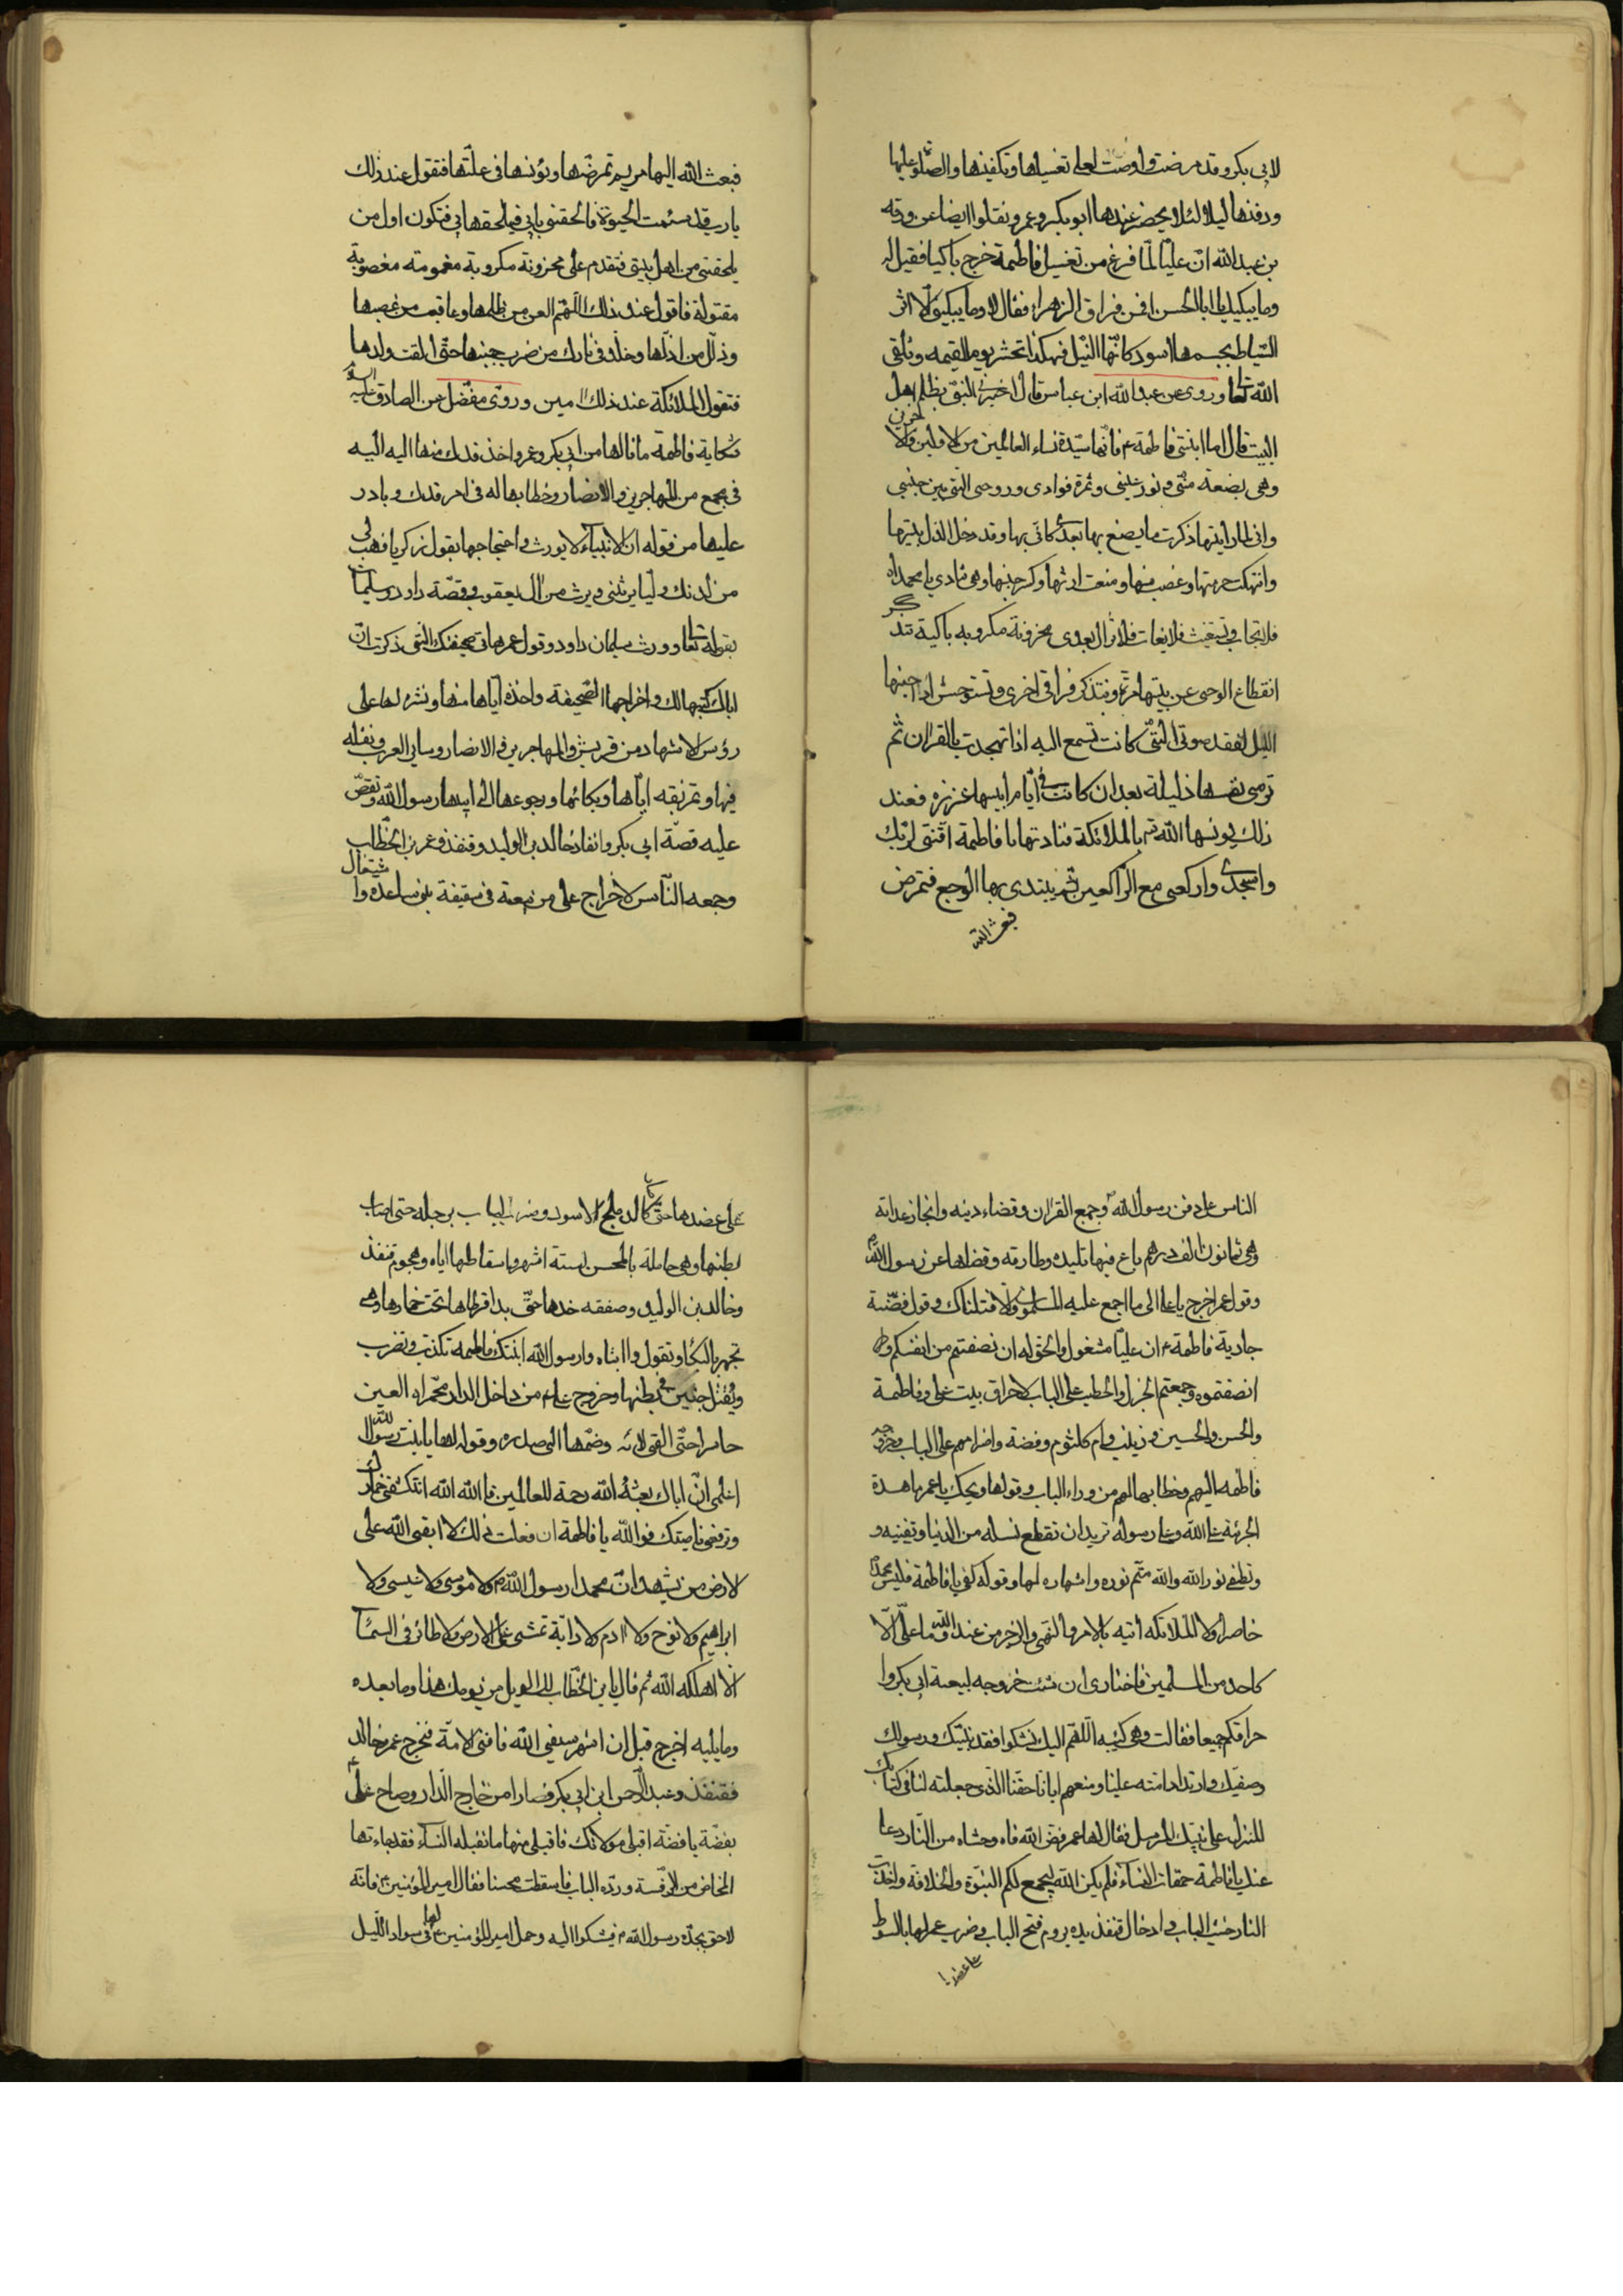 لابي بكر وقد مرضت واوصت لعلي تغسيلها وتكفينها والصلوة عليها
ودفنها ليلا لئلا يحضر عندها ابو بكر وعمر ونقلوا ايضا عن ورقه
بن عبد الله انّ عليّا لمّا فرغ من تغسيل فاطمة خرج باكيا فقيل له
وما يبكيك يا ابا الحسن افمن فراق الزهراء فقال لا وما يبكيني الّا اثر
السّياط بجسمها اسود كانّها النّيل فهكذا تحشر يوم القيمه وتلقى
الله تعا وروى عن عبد الله ابن عباس قال اخبر النبى بظلم اهل
البيت قال اما ابنتى فاطمة ع فانّها سيّدة نساء العالمين من الاولين والا
خرين
وهى بضعة منّى ونور عينى وثمرة فوادى وروحى التى بين جنبى
وانى لما رايتها ذكرت ما يصنع بها بعدى كانّى بها وقد دخل الذل بيتها
وانتهكت حرمتها وغصب منها ومنعت ارثها وكسر جنبها وهى تنادى يا محمداه
فلا تجاب وتستغيث فلا تغاث فلا تزال بعدى محزونة مكروبه باكية تتذ
كر
انقطاع الوحى عن بيتها مرّة وتتذكر فراقى اخرى وتستوحش اذا جنبها
الليل لفقد صوتى الّتى كانت تسمع اليه اذا تهجدت بالقران ثم
ترى نفسها ذليلة بعد ان كانت فى ايّام ابيها عزيزه فعند
ذلك يونسها الله تع بالملائكة فنادتها يا فاطمة اقنتى لربّك
واسجدى واركعى مع الرّاكعين ثم يبتدى بها الوجع فتمرض
فبعث الله
فبعث الله اليها مريم تمرضها وتؤنسها فى علّتها فتقول عند ذلك
يا رب قد سئمت الحيوة فالحقنى بابى فيلحقها بى فتكون اول من
يلحقنى من اهل بيتى فتقدم على محزونة مكروبة مغمومة مغصوبة
مقتولة فاقول عند ذلك اللّهم العن من ظلمها وعاقب من غصبها
وذلّل من اذلّها وخلّد فى نارك من ضرب جنبها حتّى القت ولدها
فتقول الملائكة عند ذلك امين وروى مفضّل عن الصادق عليه السلام
شكاية فاطمة ما نالها من ابى بكر وعمر واخذ فدك منها اليه اليه
فى مجمع من المهاجرين والانصار وخطابها له فى امر فدك وبا در
عليها من قوله انّ الانبياء لا يورث واحتجاجها بقول زكريا فهب لى
من لدنك وليّا يرثنى ويرث من ال يعقوب وقصّة داود وسليمان
بقوله تعا وورث سليمان داود وقول عمر هاتى صحيفتك التى ذكرت انّ
اباك كتبها لك واخراجها الصّحيفة واخذه ايّاها منها ونشره لها على
رؤس الاشهاد من قريش والمهاجرين والانصار وساير العرب وتفله
فيها وتمزيقه ايّاها وبكائها ورجوعها الى ابيها رسول الله وتقصّ
عليه قصّة ابى بكر وانفاذ خالد بن الوليد وقنفذ وعمر بن الخطّاب
وجمعه النّاس لاخراج على من بيعتة فى سقيفة بنى ساعده وا
شتغال
الناس على دفن رسول الله وجمع القران وقضاء دينه وانجاز عداته
وهى ثمانون الف درهم باع فيها تليده وطارقه وقضاها عن رسول الله
وقول عمر اخرج يا على الى ما اجمع عليه المسلمون والّا قتلناك وقول فضّة
جارية فاطمة ع ان عليّا مشغول والحق له ان نصفتم من انفسكم و
انصفتموه وجمعتم الجزل والحطب على الباب لاحراق بيت على وفاطمة
والحسن والحسين وزينب وام كلثوم وفضة واضرامهم على الباب وخروج
فاطمه اليهم وخطابها لهم من وراء الباب وقولها ويحك يا عمر ما هذة
الجرئة على الله وعلى رسوله تريد ان تقطع نسله من الدنيا وتفنيه و
وتطفى نور الله والله متم نوره وانتهاره لها وقوله كفى يا فاطمة فليس محمد
حاضرا ولا الملائكه اتيه بالامر والنهى والزجر من عند الله وما علىّ الّا
كاحد من المسلمين فاختارى ان شئت خروجه لبيعة ابى بكر وا
حراقكم جميعا فقالت وهى كئيبه اللّهم اليك نشكوا فقد نبيّك ورسولك
وصفيّك وارتداد امته علينا ومنعهم ايانا حقّنا الّذى جعلته لنا فى كتابك
المنزل على نبيّك المرسل فقال لها عمر فضّ الله فاه وحشاه من النّار دعا
عنك يا فاطمة حمقات النساء فلم يكن الله ليجمع لكم النبّوة والخلافة واخذت
النار خشب الباب وادخال قنفذ يده يروم فتح الباب وضرب عمر لها بالسوط
على عضدها
على عضدها حتى كان كالدملج الاسود وضرب الباب برجله حتى اصاب
بطنها وهى حاملة بالمحسن لستة اشهر واسقاطها اياه وهجوم قنفذ
وخالد بن الوليد وصفقه خدها حتّى بدا قرطاها تحت خمارها وهى
تجهر بالبكاء وتقول وا ابتاه وا رسول الله ابنتك فاطمة تكذب وتضرب
ويقتل جنين فى بطنها وخروج على ع من داخل الدار محمّراه العين
حاسرا حتّى القى ملائه وضمّها الى صدره وقوله لها يا بنت رسول الله
اعلمى انّ اباك بعثه الله رحمة للعالمين فا الله الله ان تكشفى خمارك
وترفعى ناصيتك فوالله يا فاطمة ان فعلت ذلك لا ابقى الله على
لارض من يشهد انّ محمدا رسول الله ولا موسى ولا عيسى ولا
ابراهيم ولا نوح ولا ادم ولا دابّة تمشى على الارض ولا طائر فى السمآء
الّا اهلكه الله ثم قال يا بن الخطّاب لك الويل من يومك هذا وما بعده
وما يليه اخرج قبل ان اشهر سيفى الله فافنى الامّة فخرج عمر وخالد
فقنفذ وعبد الرحمن ابن ابى بكر فصارا من خارج الدّار وصاح على
بفضّة يا فضّة اقبلى مولاتك فاقبلى منها ما تقبله النّساء فقد جاءتها
المخاض من الرفسة وردّه الباب فاسقطت محسنا فقال امير المؤمنين ع فانّه
لاحق بجدّه رسول الله ص فيشكوا اليه وحمل امير المؤمنين ع لها فى سواد اللّيل